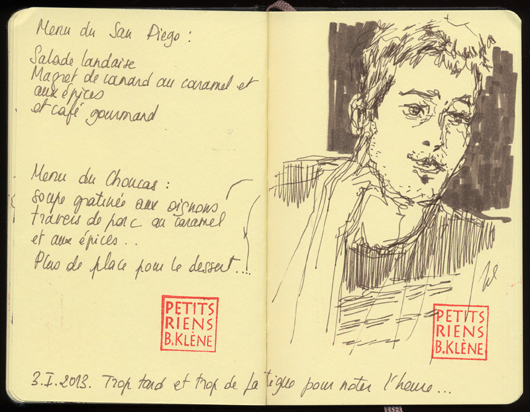 Menu du San Diego :
Salade landaise
Magret de canard au caramel et
aux épices
et café gourmand
Menu du Choucas :
soupe gratinée aux oignons
travers de porc au caramel
et aux épices...
Plus de place pour le dessert...
PETITS
RIENS
B.KLÈNE
PETITS
RIENS
B.KLÈNE
3.I.2013. Trop tard et trop de fatigue pour noter l'heure...